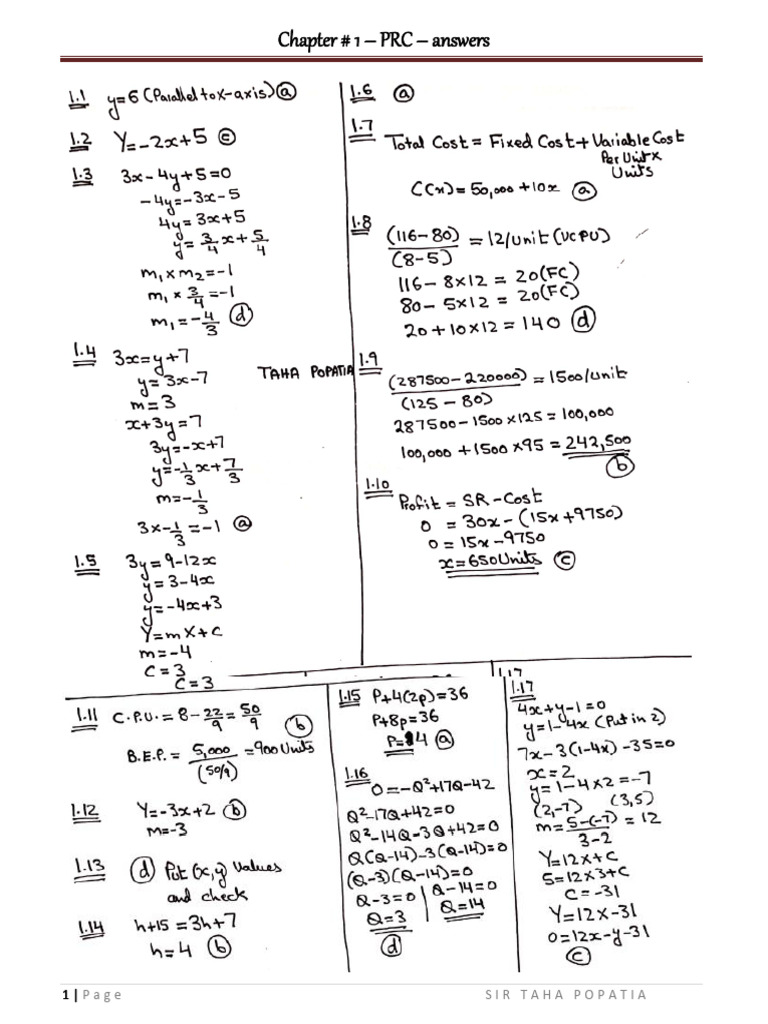 Chapter # 1 – PRC – answers
1.1 y=6 (Parallel to x-axis) (a)
1.2 Y=-2x+5 (c)
1.3 3x-4y+5=0
-4y=-3x-5
4y=3x+5
y=3/4x+5/4
m₁xm₂=-1
m₁x3/4=-1
m₁=-4/3 (d)
1.4 3x=y+7
y=3x-7
m=3
x+3y=7
3y=-x+7
y=-1/3x+7/3
m=-1/3
3x-1/3=-1 (a)
1.5 3y=9-12x
y=3-4x
y=-4x+3
Y=mX+C
m=-4
C=3
C=3
TAHA POPATIA
1.6 (a)
1.7 Total Cost = Fixed Cost + Variable Cost
Per Unit x
Units
C(x)=50,000+10x (a)
1.8 (116-80)/(8-5) = 12/Unit (VCPU)
116-8x12 = 20(FC)
80-5x12 = 20(FC)
20+10x12=140 (d)
1.9 (287500-220000)/(125-80) = 1500/Unit
287500-1500x125=100,000
100,000+1500x95=242,500
(b)
1.10 Profit = SR-Cost
0 = 30x-(15x+9750)
0=15x-9750
x=650Units (c)
1.11 C.P.U.=8-22/9=50/9 (b)
B.E.P.=5,000/(50/9)=900Units
1.12 Y=-3x+2 (b)
m=-3
1.13 (d) Put (x,y) values
and check
1.14 h+15=3h+7
h=4 (b)
1.15 P+4(2p)=36
P+8p=36
P=4 (a)
1.16 0=-Q²+17Q-42
Q²-17Q+42=0
Q²-14Q-3Q+42=0
Q(Q-14)-3(Q-14)=0
(Q-3)(Q-14)=0
Q-3=0 | Q-14=0
Q=3 | Q=14
(d)
1.17
1.17
4x+y-1=0
y=1-4x (Put in 2)
7x-3(1-4x)-35=0
x=2
y=1-4x2=-7
(2,-7) (3,5)
m=5-(-7)/3-2=12
Y=12x+C
5=12x3+C
C=-31
Y=12X-31
0=12x-y-31
(c)
1 | Page SIR TAHA POPATIA